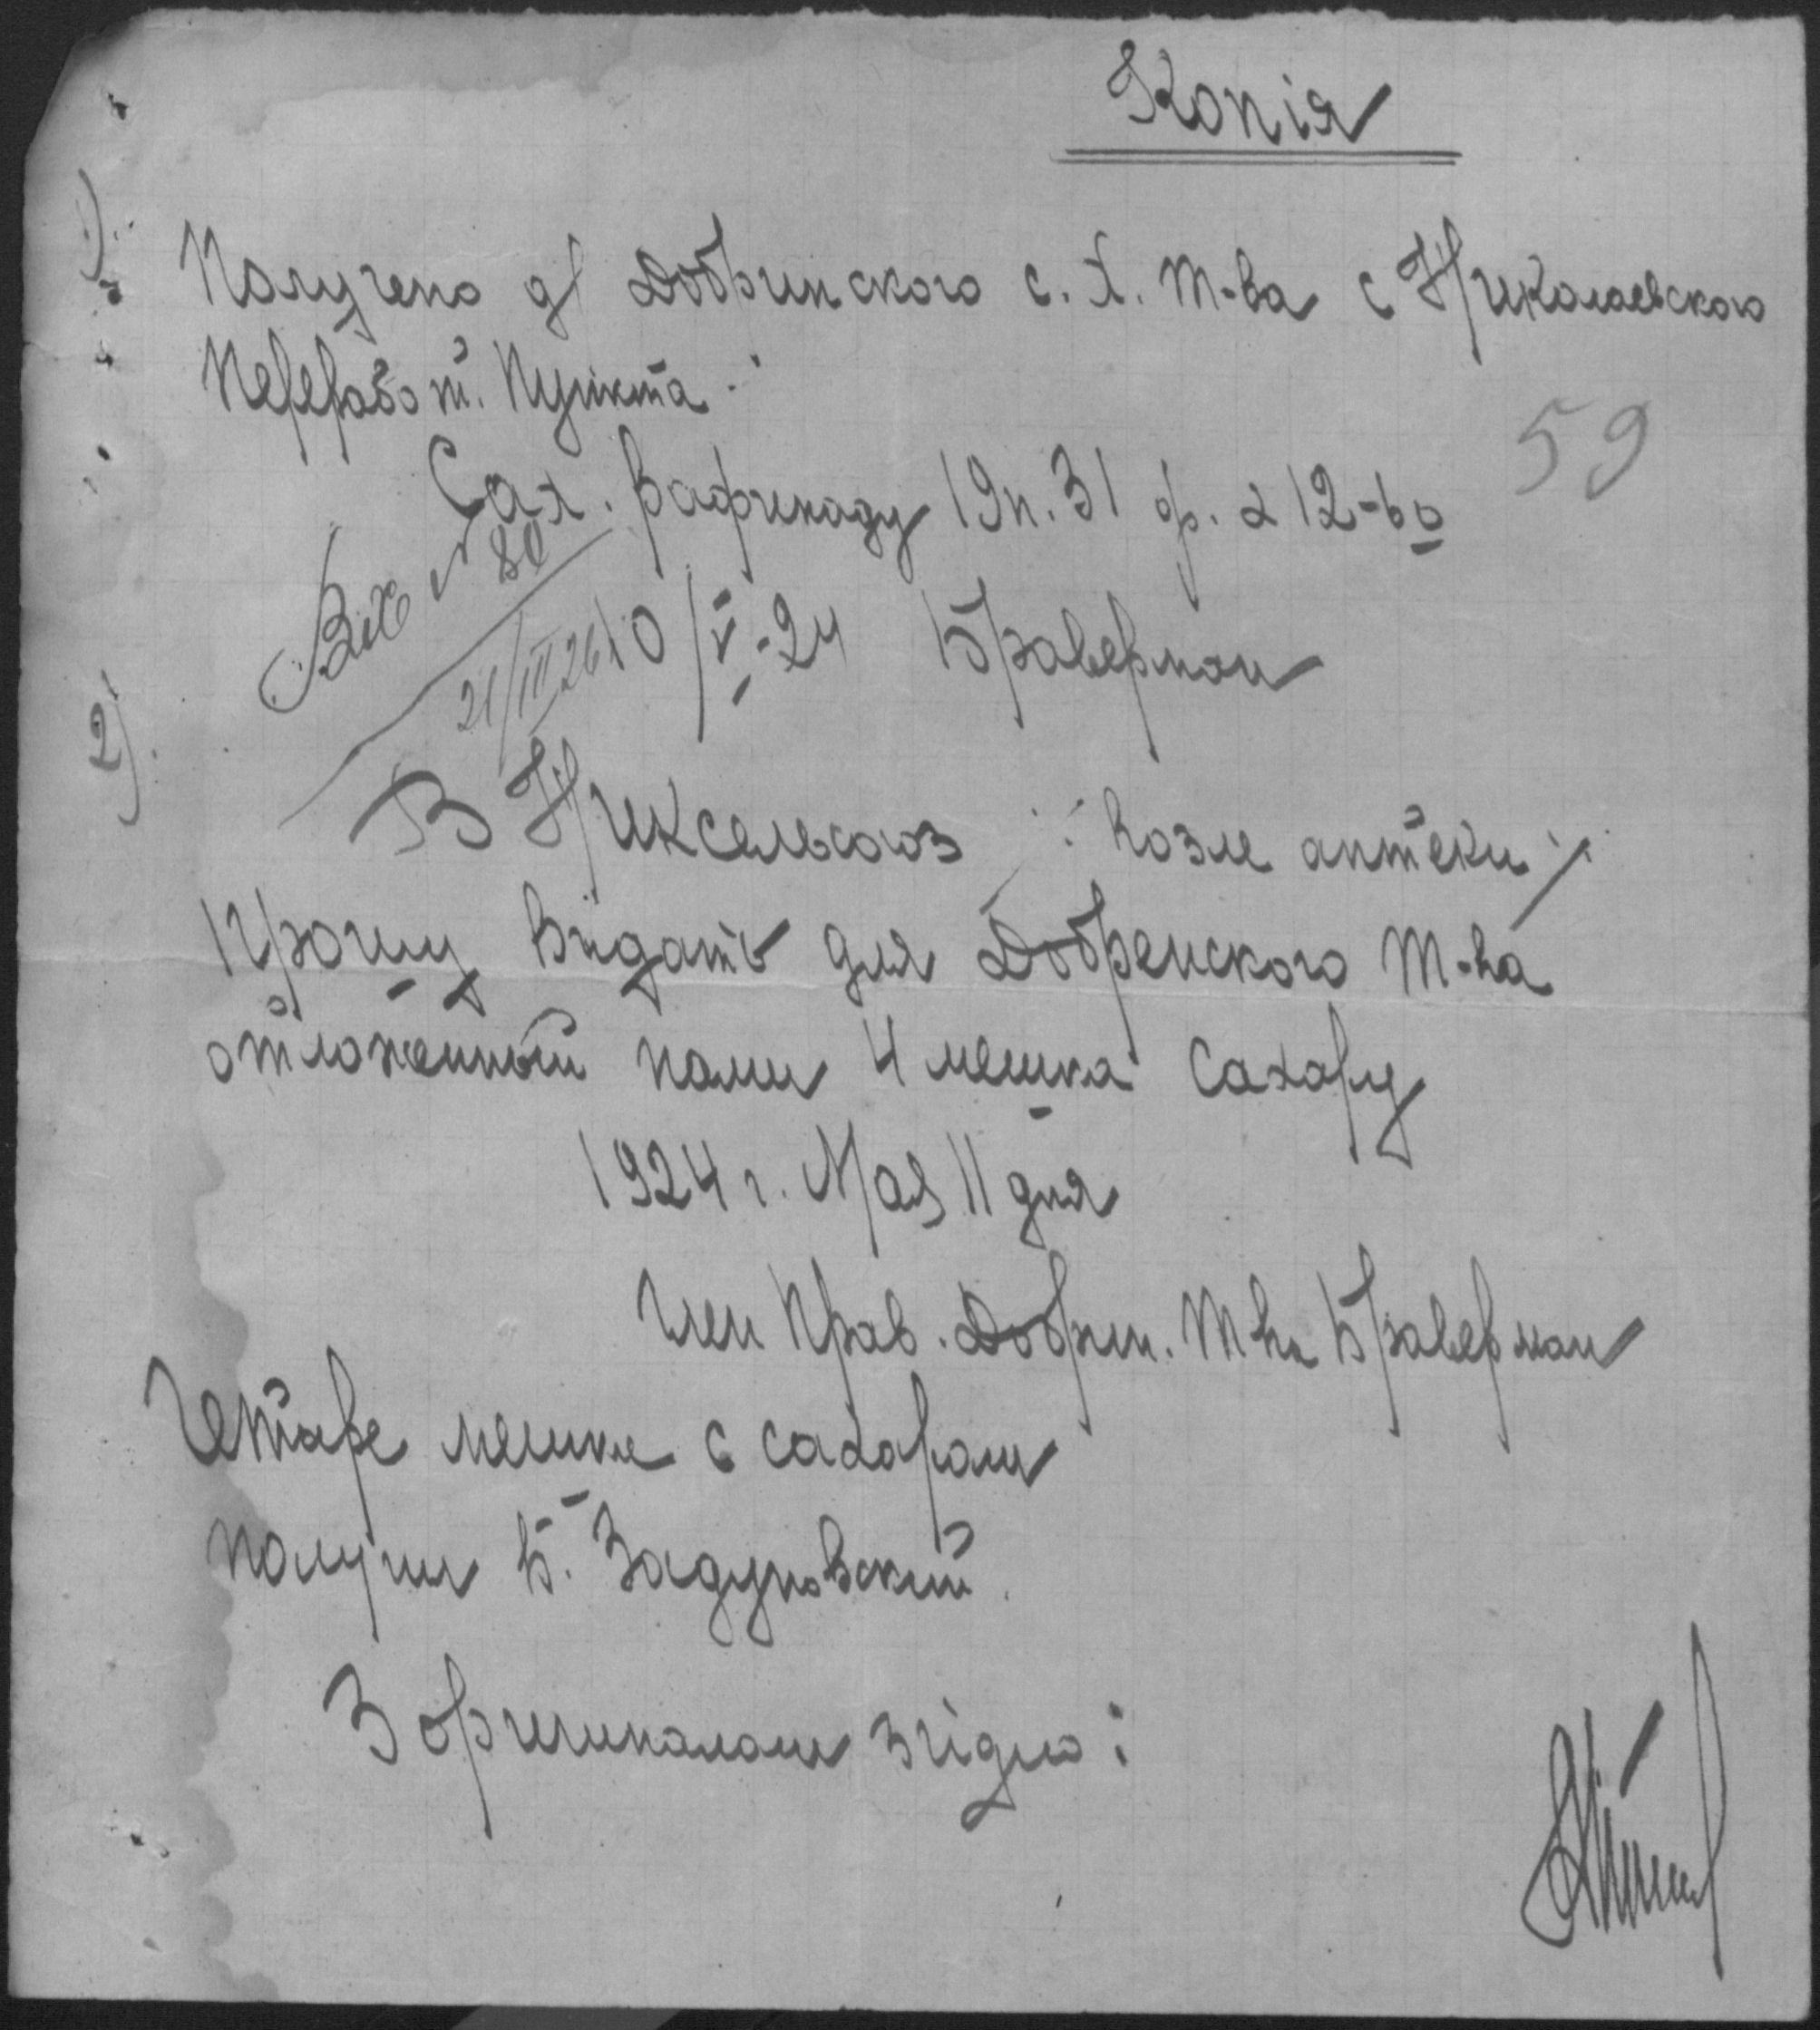 Копія
1) Получено д/ Добринского с. х. т-ва с Николаевского
Переработ. Пункта.
59
Сах. рафинаду 19 п. 31 ф. а 12-60
Вх № 80
21/III 26
10/V-24 Браверман
2) В Никсельсоюз /: возле аптеки :/
Прошу видать для Добренского т-ва
отложенный нами 4 мешка сахару
1924 г. Мая 11 дня
Член Прав. Добрин. т-ва Браверман
Четыре мешке с сахаром
получил Б. Задуновский.
З оригиналом згідно: